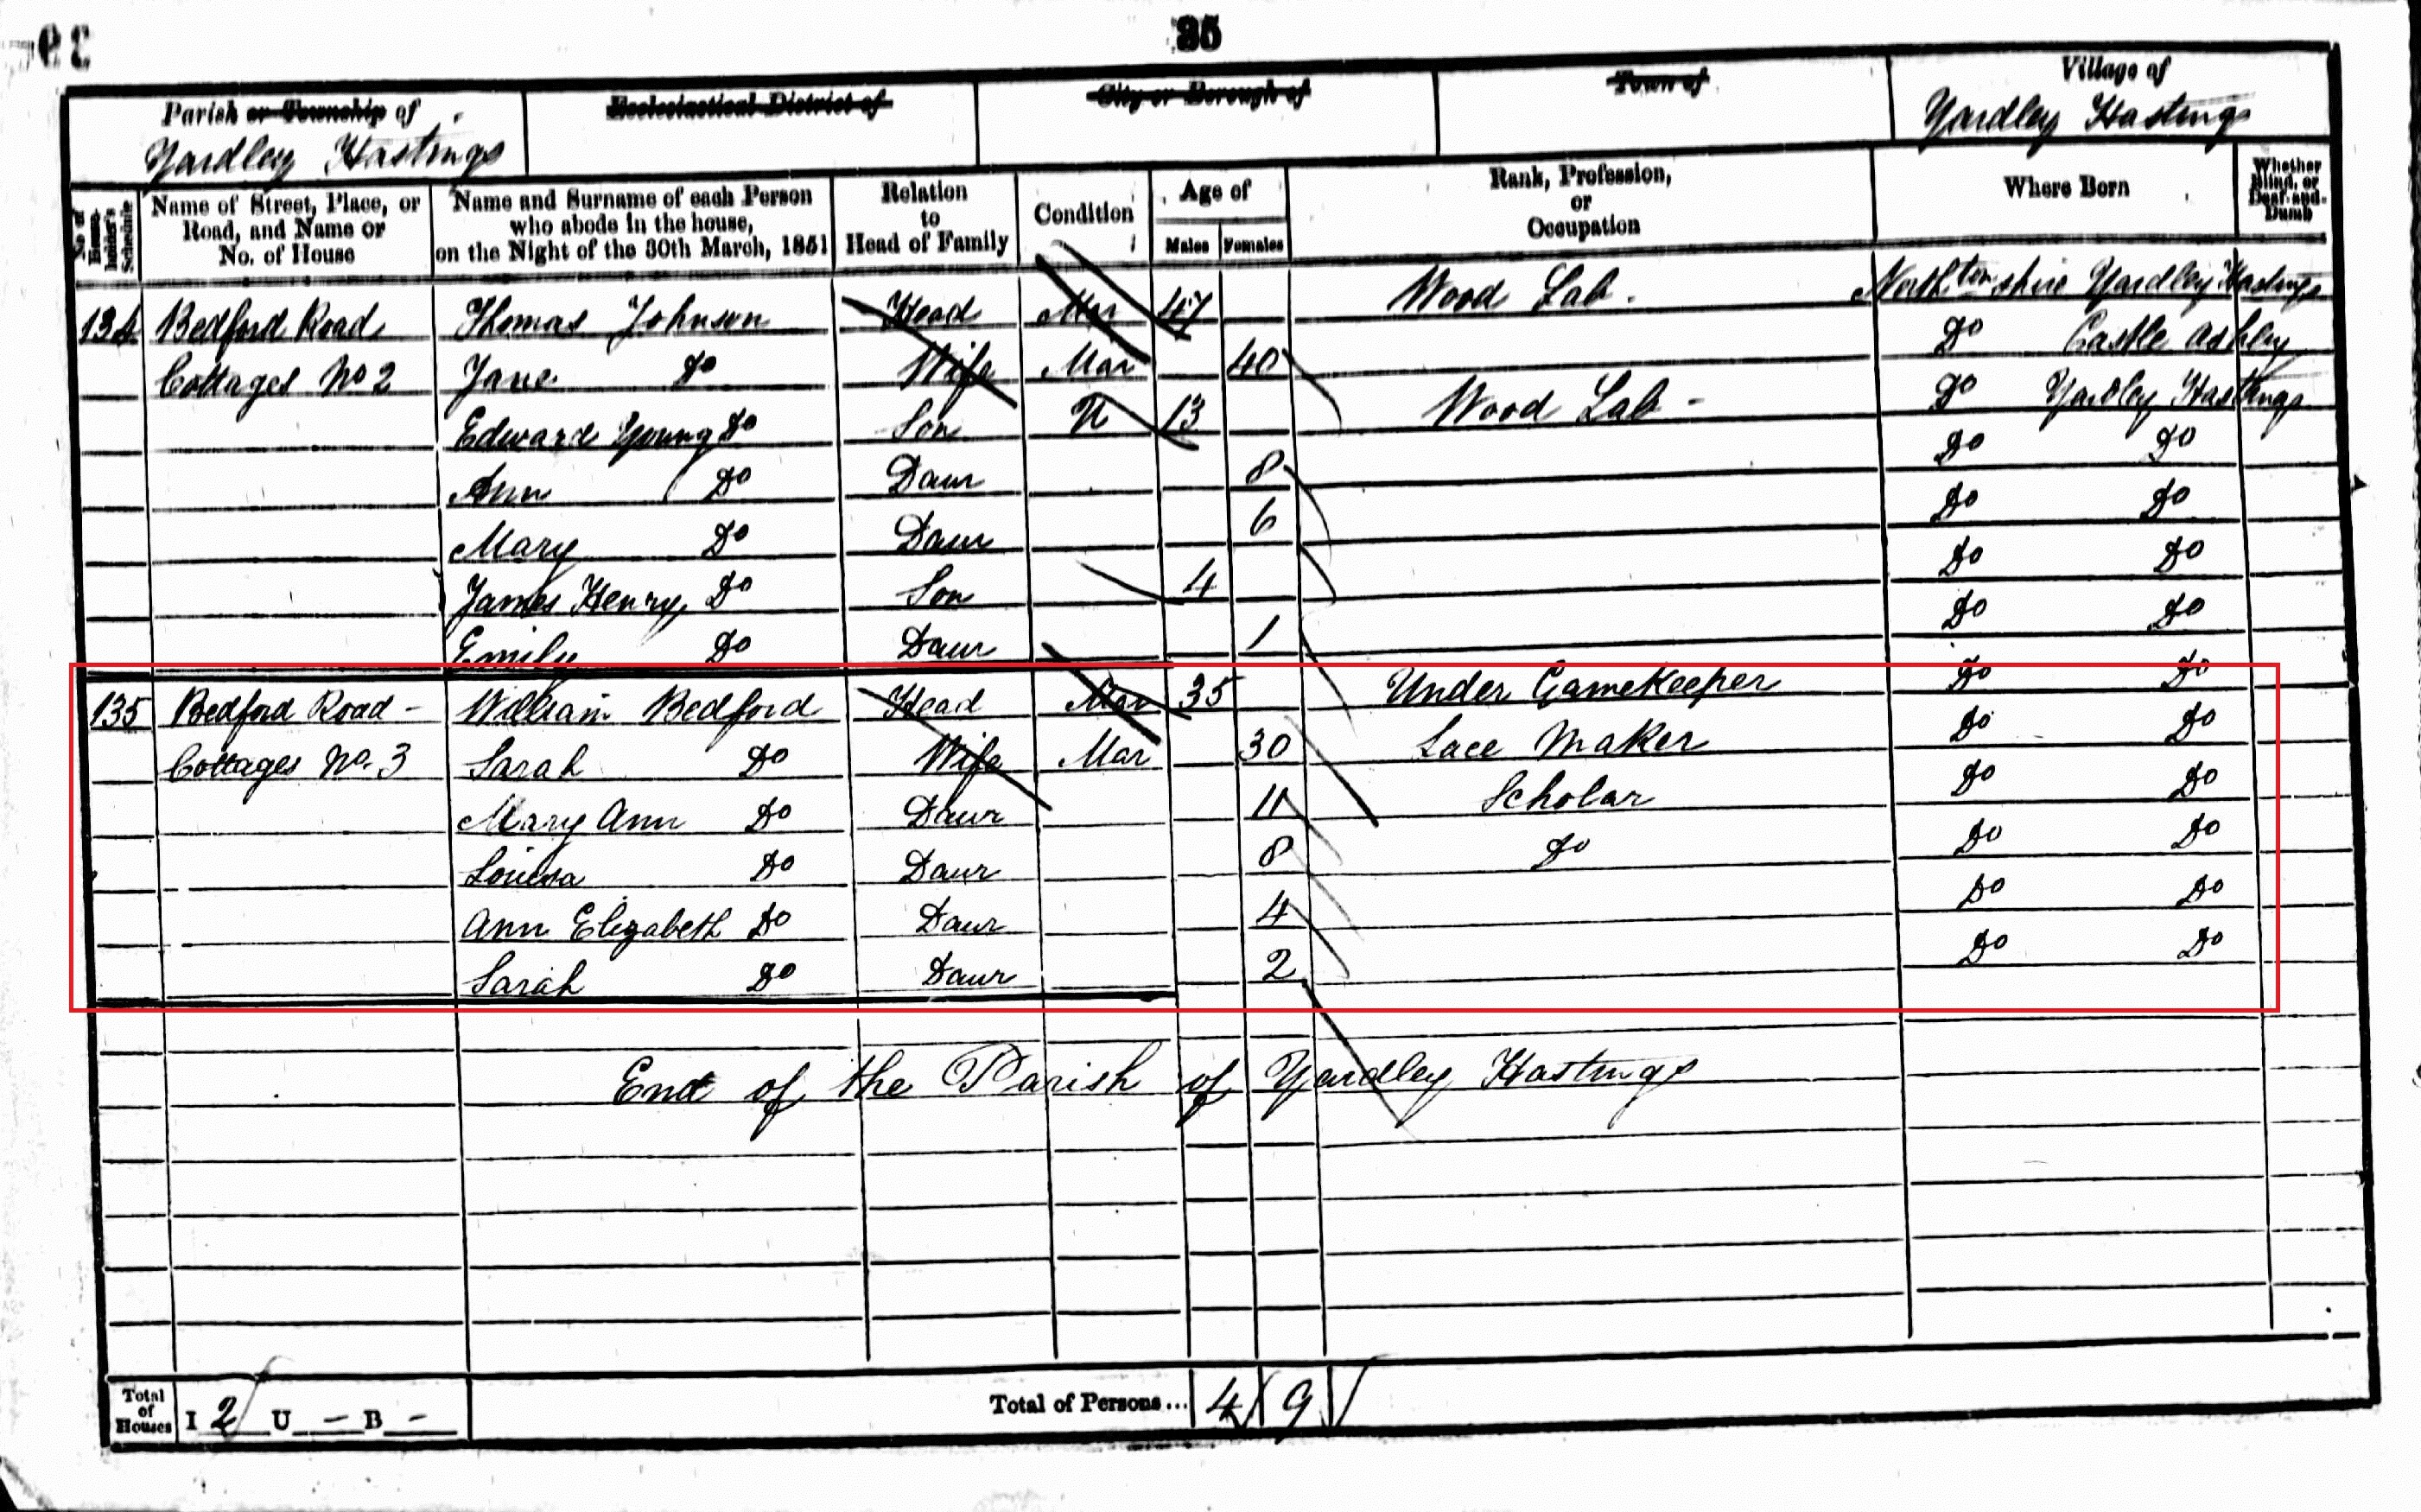 35
Parish or Township of
Yardley Hastings
Ecclesiastical District of
City or Borough of
Town of
Village of
Yardley Hastings
No. of House-holder's Schedule
Name of Street, Place, or Road, and Name or No. of House
Name and Surname of each Person who abode in the house, on the Night of the 30th March, 1851
Relation to Head of Family
Condition
Age of
Males Females
Rank, Profession, or Occupation
Where Born
Whether Blind, or Deaf-and-Dumb
134 Bedford Road Thomas Johnson Head Mar 47 Wood Lab. Northtonshire Yardley Hastings
Cottages No 2 Jane Do Wife Mar 40 Do Castle Ashley
Edward Young Do Son U 13 Wood Lab - Do Yardley Hastings
Ann Do Daur 8 Do Do
Mary Do Daur 6 Do Do
James Henry Do Son 4 Do Do
Emily Do Daur 1 Do Do
135 Bedford Road - William Bedford Head Mar 35 Under GameKeeper Do Do
Cottages No. 3 Sarah Do Wife Mar 30 Lace Maker Do Do
Mary Ann Do Daur 11 Scholar Do Do
Louisa Do Daur 8 Do Do Do
Ann Elizabeth Do Daur 4 Do Do
Sarah Do Daur 2 Do Do
End of the Parish of Yardley Hastings
Total of Houses I 2 U — B — Total of Persons... 4 9